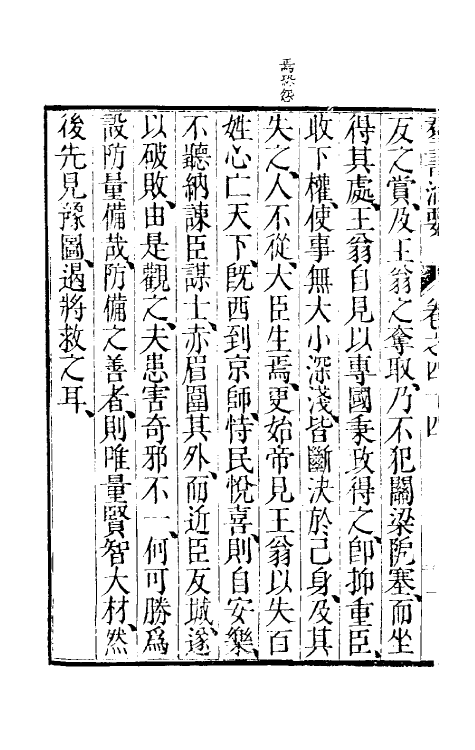 羣書治要 卷之四十四
反之賞、及王翁之奪取、乃不犯關梁阸塞、而坐
得其處、王翁自見以專國秉政得之、卽抑重臣、
收下權、使事無大小深淺皆斷決於己身、及其
失之、人不從、大臣生焉、更始帝見王翁以失百
姓心亡天下、旣西到京師、恃民悅喜、則自安樂、
不聽納諫臣謀士、赤眉圍其外、而近臣反城、遂
以破敗、由是觀之、夫患害奇邪不一、何可勝爲
設防量備哉、防備之善者、則唯量賢智大材、然
後先見豫圖、遏將救之耳、
焉恐怨